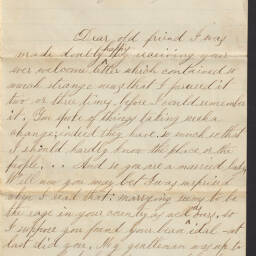 Dear old friend I was
made doubly happy by receiving your
ever welcome letter which contained so
much strange news that I perused it
two or three times before I could remember
it. You spoke of things taking such a
change, indeed they have so much so that
I should hardly know the place or the
people. . . And so you are a married lady
Well now you may bet I was surprised
when I read that: marrying seems to be
the rage in your country by act so
I suppose you found your beau ideal at
last did you. My gentleman was up to